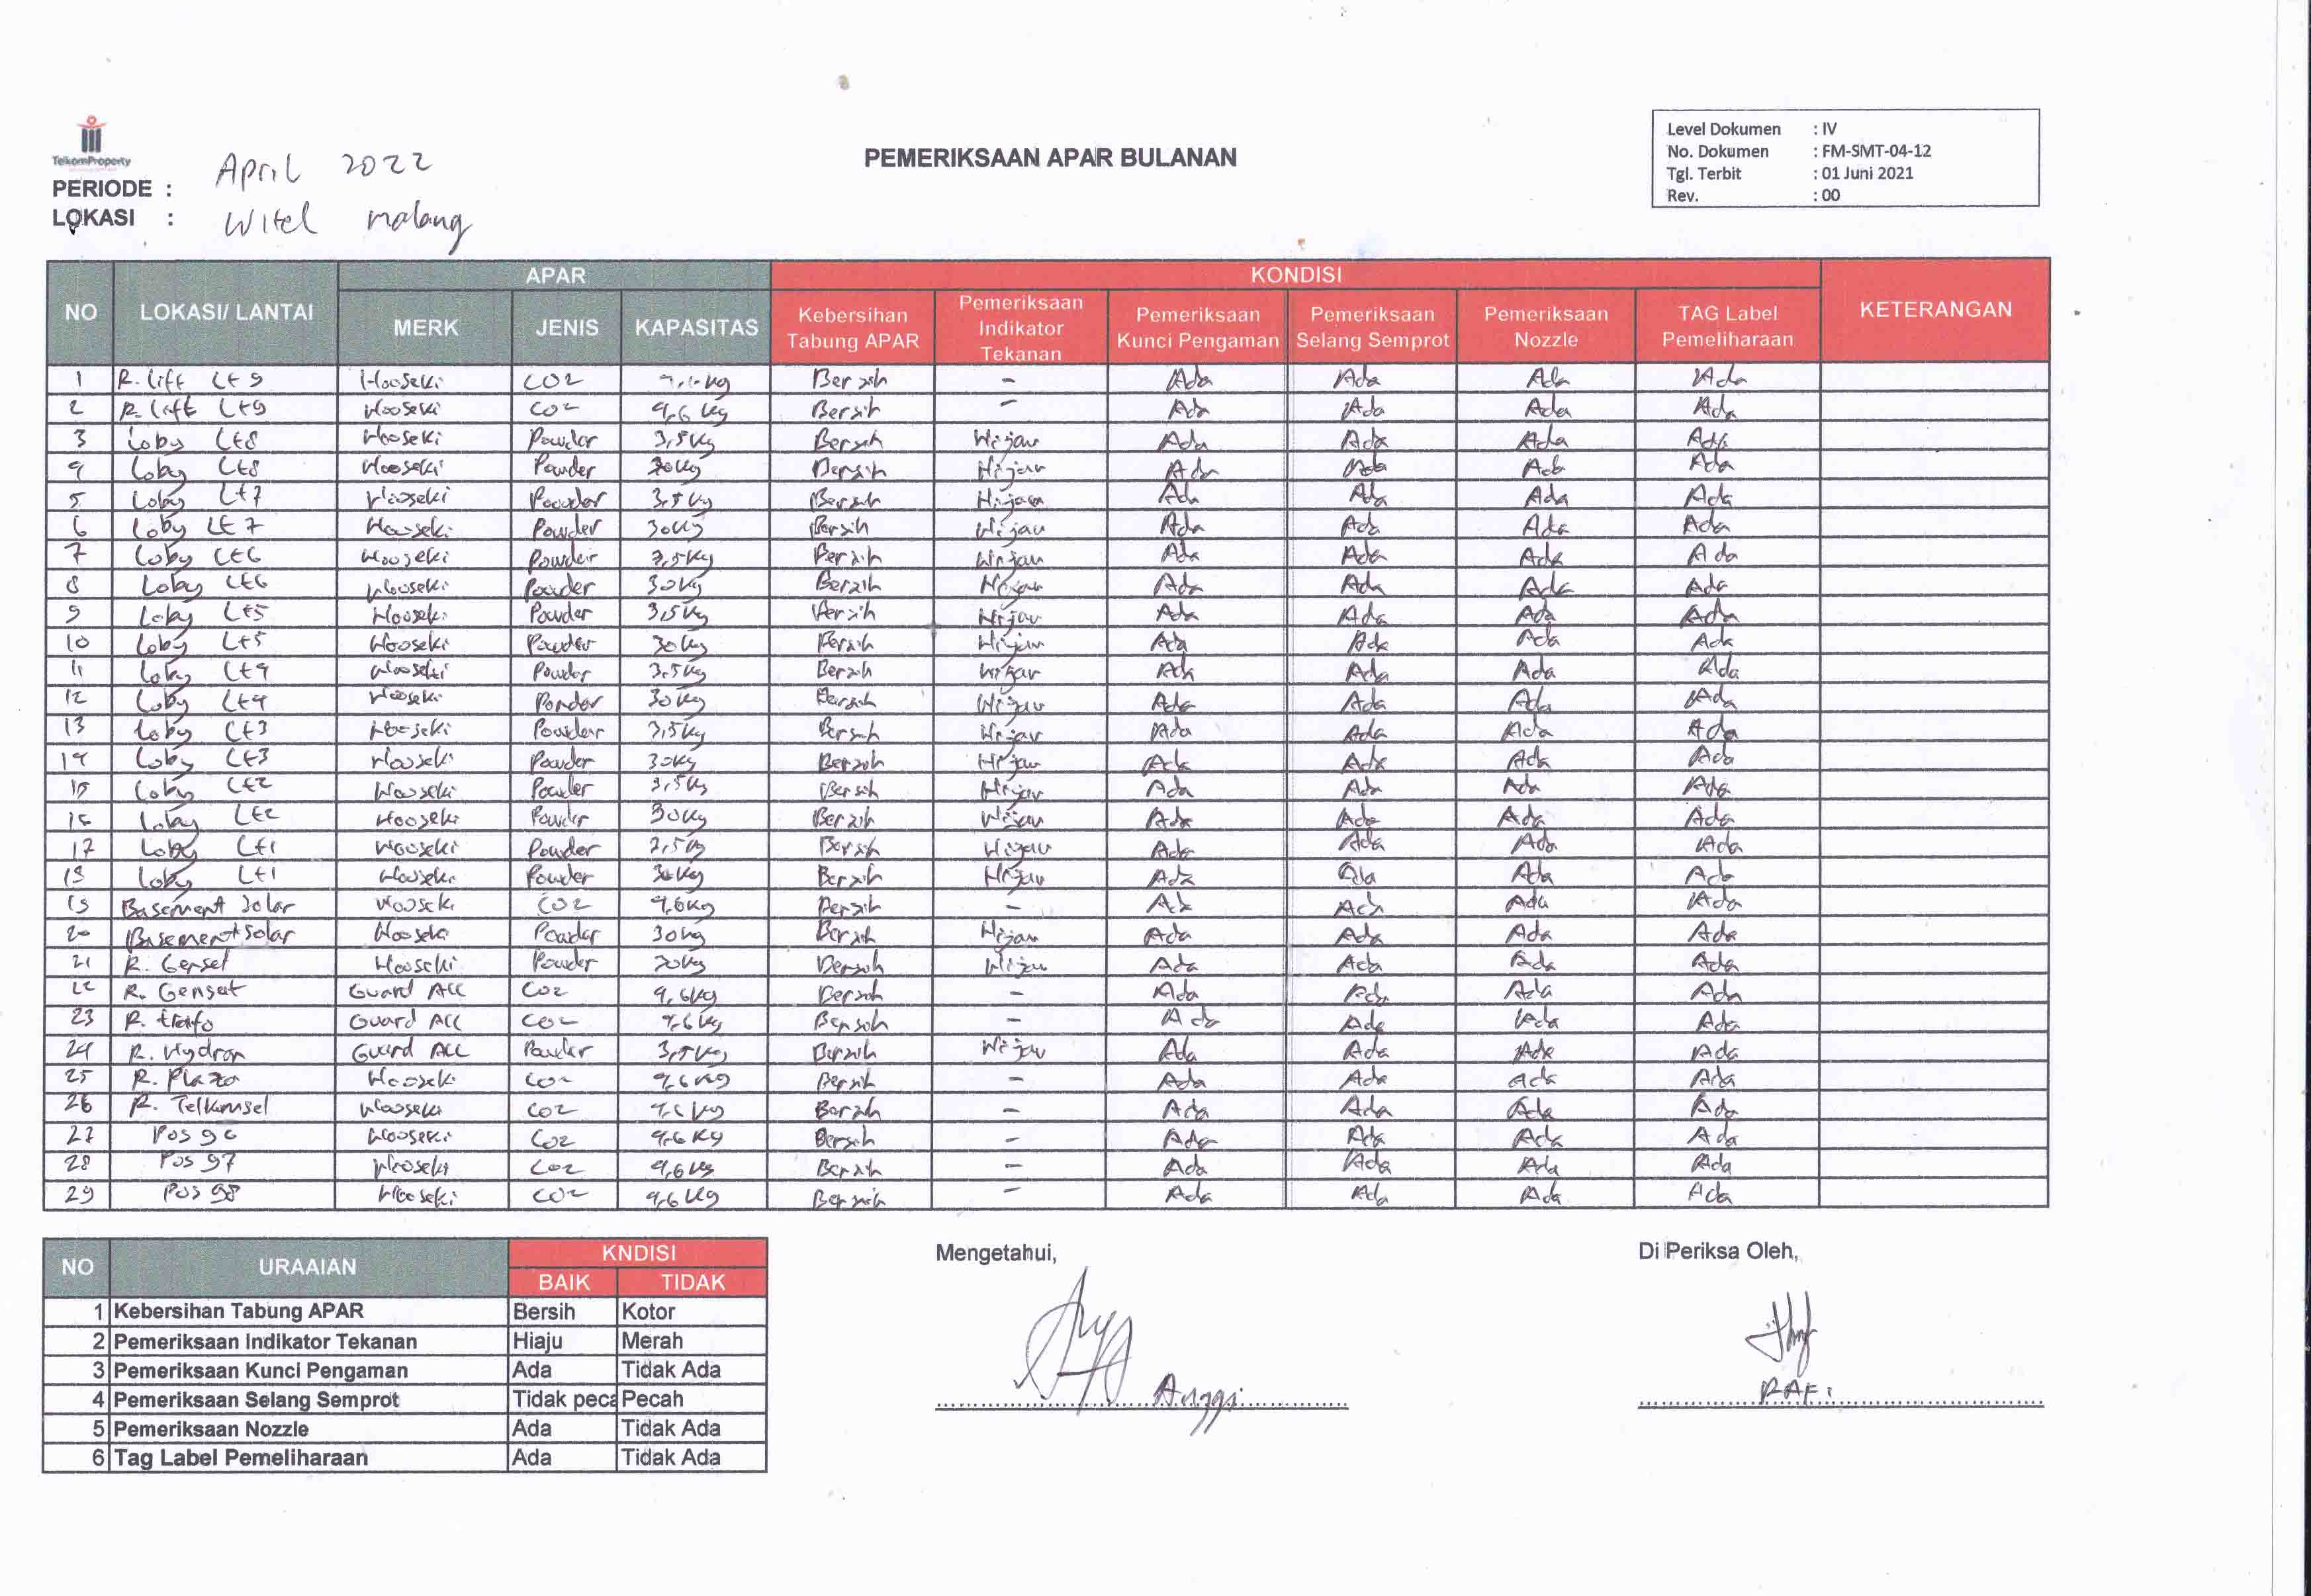 TelkomProperty
PERIODE : April 2022
LOKASI : Witel malang
PEMERIKSAAN APAR BULANAN
Level Dokumen : IV
No. Dokumen : FM-SMT-04-12
Tgl. Terbit : 01 Juni 2021
Rev. : 00
NO LOKASI/ LANTAI APAR KONDISI KETERANGAN
MERK JENIS KAPASITAS Kebersihan Tabung APAR Pemeriksaan Indikator Tekanan Pemeriksaan Kunci Pengaman Pemeriksaan Selang Semprot Pemeriksaan Nozzle TAG Label Pemeliharaan
1 R. lift Lt 9 Hooseki CO2 Bersih - Ada Ada Ada Ada
2 R. lift Lt9 Hooseki CO2 4,6 Kg Bersih - Ada Ada Ada Ada
3 Loby Lt8 Hooseki Powder 3,5Kg Bersih Hijau Ada Ada Ada Ada
4 Loby Lt8 Hooseki Powder 30Kg Bersih Hijau Ada Ada Ada Ada
5 Loby Lt7 Hooseki Powder 3,5Kg Bersih Hijau Ada Ada Ada Ada
6 Loby Lt 7 Hooseki Powder 30Kg Bersih Hijau Ada Ada Ada Ada
7 Loby Lt6 Hooseki Powder 3,5Kg Bersih Hijau Ada Ada Ada Ada
8 Loby Lt6 Hooseki Powder 30Kg Bersih Hijau Ada Ada Ada Ada
9 Loby Lt5 Hooseki Powder 3,5Kg Bersih Hijau Ada Ada Ada Ada
10 Loby Lt5 Hooseki Powder 30Kg Bersih Hijau Ada Ada Ada Ada
11 Loby Lt4 Hooseki Powder 3,5Kg Bersih Hijau Ada Ada Ada Ada
12 Loby Lt4 Hooseki Powder 30Kg Bersih Hijau Ada Ada Ada Ada
13 Loby Lt3 Hooseki Powder 3,5Kg Bersih Hijau Ada Ada Ada Ada
14 Loby Lt3 Hooseki Powder 30Kg Bersih Hijau Ada Ada Ada Ada
15 Loby Lt2 Hooseki Powder 3,5Kg Bersih Hijau Ada Ada Ada Ada
16 Loby Lt2 Hooseki Powder 30Kg Bersih Hijau Ada Ada Ada Ada
17 Loby Lt1 Hooseki Powder 3,5Kg Bersih Hijau Ada Ada Ada Ada
18 Loby Lt1 Hooseki Powder 30Kg Bersih Hijau Ada Ada Ada Ada
19 Basement Solar Hooseki CO2 4,6Kg Bersih - Ada Ada Ada Ada
20 Basement Solar Hooseki Powder 30Kg Bersih Hijau Ada Ada Ada Ada
21 R. Genset Hooseki Powder 30Kg Bersih Hijau Ada Ada Ada Ada
22 R. Genset Guard All CO2 4,6Kg Bersih - Ada Ada Ada Ada
23 R. trafo Guard All CO2 4,6Kg Bersih - Ada Ada Ada Ada
24 R. Hydran Guard All Powder 3,5Kg Bersih Hijau Ada Ada Ada Ada
25 R. Plaza Hooseki CO2 4,6Kg Bersih - Ada Ada Ada Ada
26 R. Telkomsel Hooseki CO2 4,6 Kg Bersih - Ada Ada Ada Ada
27 Pos 96 Hooseki CO2 4,6 Kg Bersih - Ada Ada Ada Ada
28 Pos 97 Hooseki CO2 4,6Kg Bersih - Ada Ada Ada Ada
29 Pos 98 Hooseki CO2 4,6 Kg Bersih - Ada Ada Ada Ada
NO URAAIAN KNDISI
BAIK TIDAK
1 Kebersihan Tabung APAR Bersih Kotor
2 Pemeriksaan Indikator Tekanan Hiaju Merah
3 Pemeriksaan Kunci Pengaman Ada Tidak Ada
4 Pemeriksaan Selang Semprot Tidak peca Pecah
5 Pemeriksaan Nozzle Ada Tidak Ada
6 Tag Label Pemeliharaan Ada Tidak Ada
Mengetahui,
Anggi
Di Periksa Oleh,
RAFi